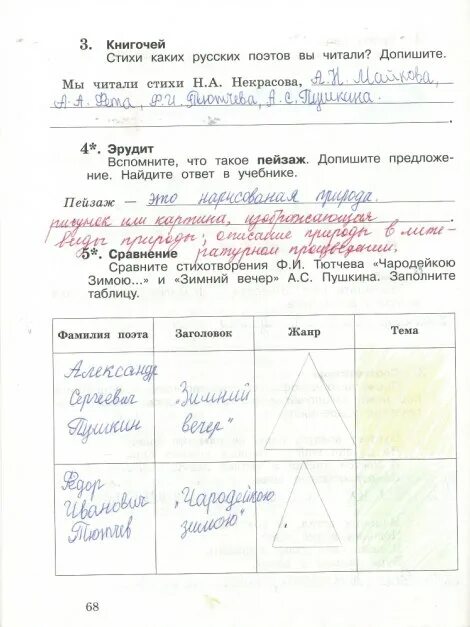 3. Книгочей
Стихи каких русских поэтов вы читали? Допишите.
Мы читали стихи Н.А. Некрасова, А.Н. Майкова,
А.А. Фета, Ф.И Тютчева, А.С. Пушкина.
4*. Эрудит
Вспомните, что такое пейзаж. Допишите предложе-
ние. Найдите ответ в учебнике.
Пейзаж — это нарисованая природа.
рисунок или картина, изображающая
виды природы; описание природы в лите-
ратурном произведении.
5*. Сравнение
Сравните стихотворения Ф.И. Тютчева «Чародейкою
Зимою...» и «Зимний вечер» А.С. Пушкина. Заполните
таблицу.
Фамилия поэта Заголовок Жанр Тема
Александр
Сергеевич "Зимний
Пушкин вечер"
Фёдор
Иванович "Чародейкою
Тютчев зимою"
68